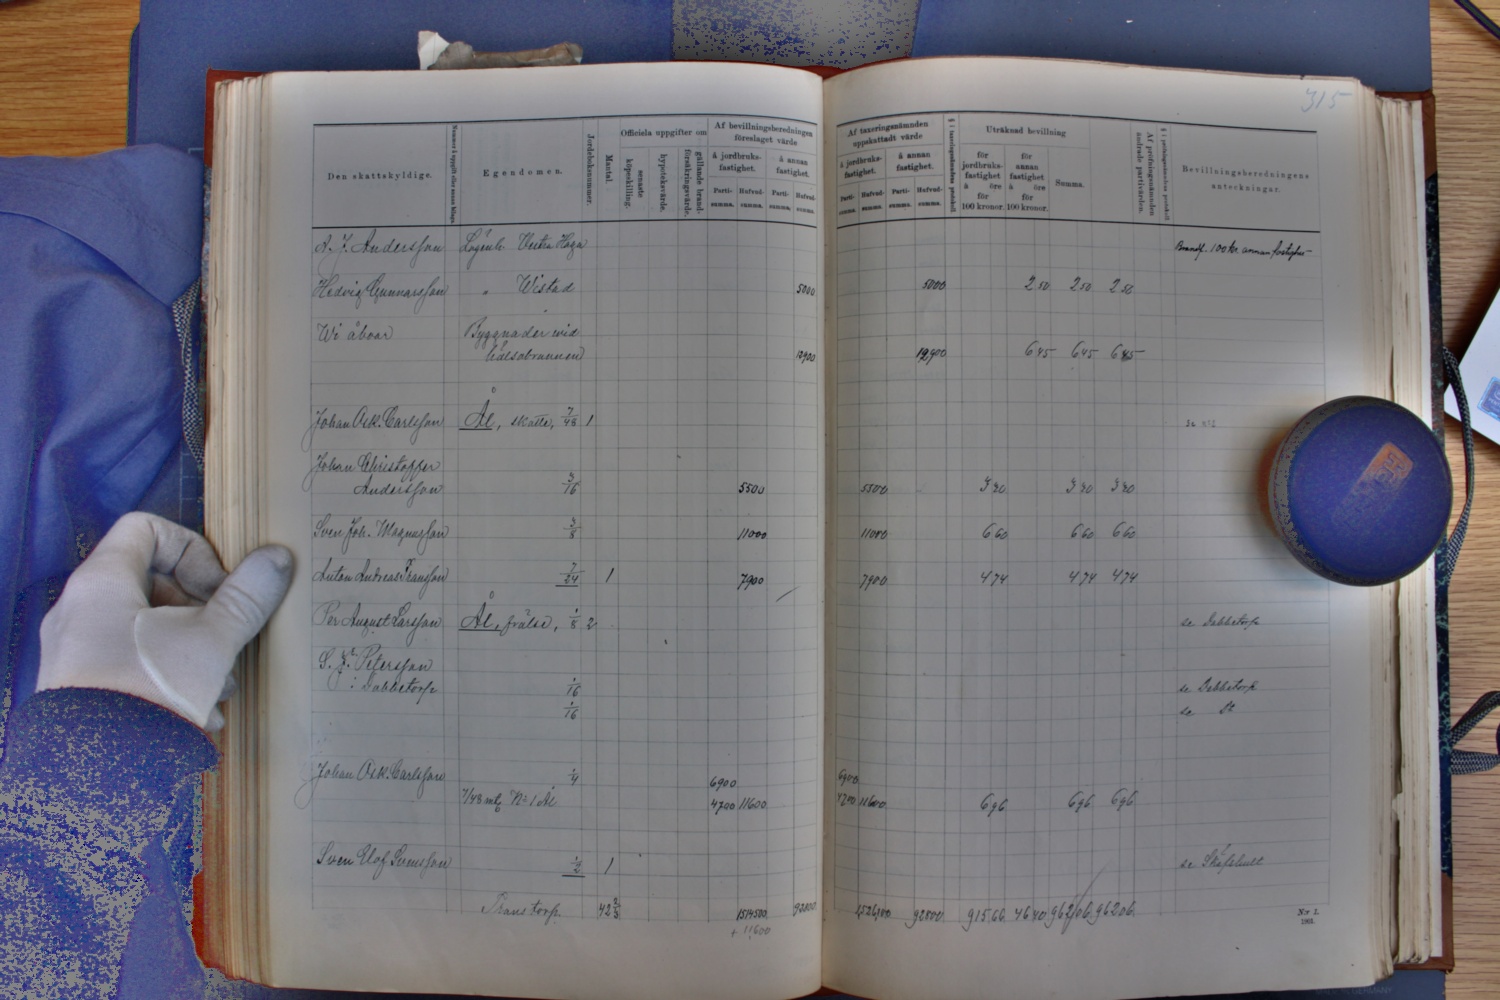 315
Den skattskyldige.
Egendomen.
Jordeboksnummer.
Mantal.
Officiela uppgifter om
senaste köpeskilling.
hypoteksvärde.
gällande brandförsäkringsvärde.
Af bevillningsberedningen föreslaget värde
å jordbruksfastighet.
å annan fastighet.
Parti-summa.
Hufvud-summa.
Parti-summa.
Hufvud-summa.
Af taxeringsnämnden uppskattadt värde
å jordbruksfastighet.
å annan fastighet.
Parti-summa.
Hufvud-summa.
Parti-summa.
Hufvud-summa.
Uträknad bevillning
för jordbruksfastighet å öre för 100 kronor.
för annan fastighet å öre för 100 kronor.
Summa.
Af pröfningsnämnden ändrade partivärden.
Bevillningsberedningens anteckningar.
A. J. Andersson Lägenh. Vestra Haga 100 kr. annan fastighet
Hedvig Gunnarsson " Wistad 5000 5000 2 50 2 50 2 50
Wi åboar Byggnader vid
hälsobrunnen 12900 12900 6 45 6 45 6 45
Johan Osk. Carlsson Ål, skatte, 7/48 1
Johan Christoffer
Andersson 3/16 5500 5500 3 30 3 30 3 30
Sven Joh. Magnusson 3/8 11000 11000 6 60 6 60 6 60
Anton Andreas Fransson 7/24 1 7900 7900 4 74 4 74 4 74
Per August Larsson Ål, frälse, 1/8 2 se Dabbetorp
S. J. Petersson
i Dabbetorp 1/16 se Dabbetorp
1/16 se Do
Johan Osk. Carlsson 1/4 6900 6900
7/48 mtl No 1 Ål 4700 11600 4700 11600 6 96 6 96 6 96
Sven Elof Svensson 1/2 1 se
Transtorp. 1514500 92800 92800 915.66. 46 40 962.06 962.06
+ 11600
N:r 2.